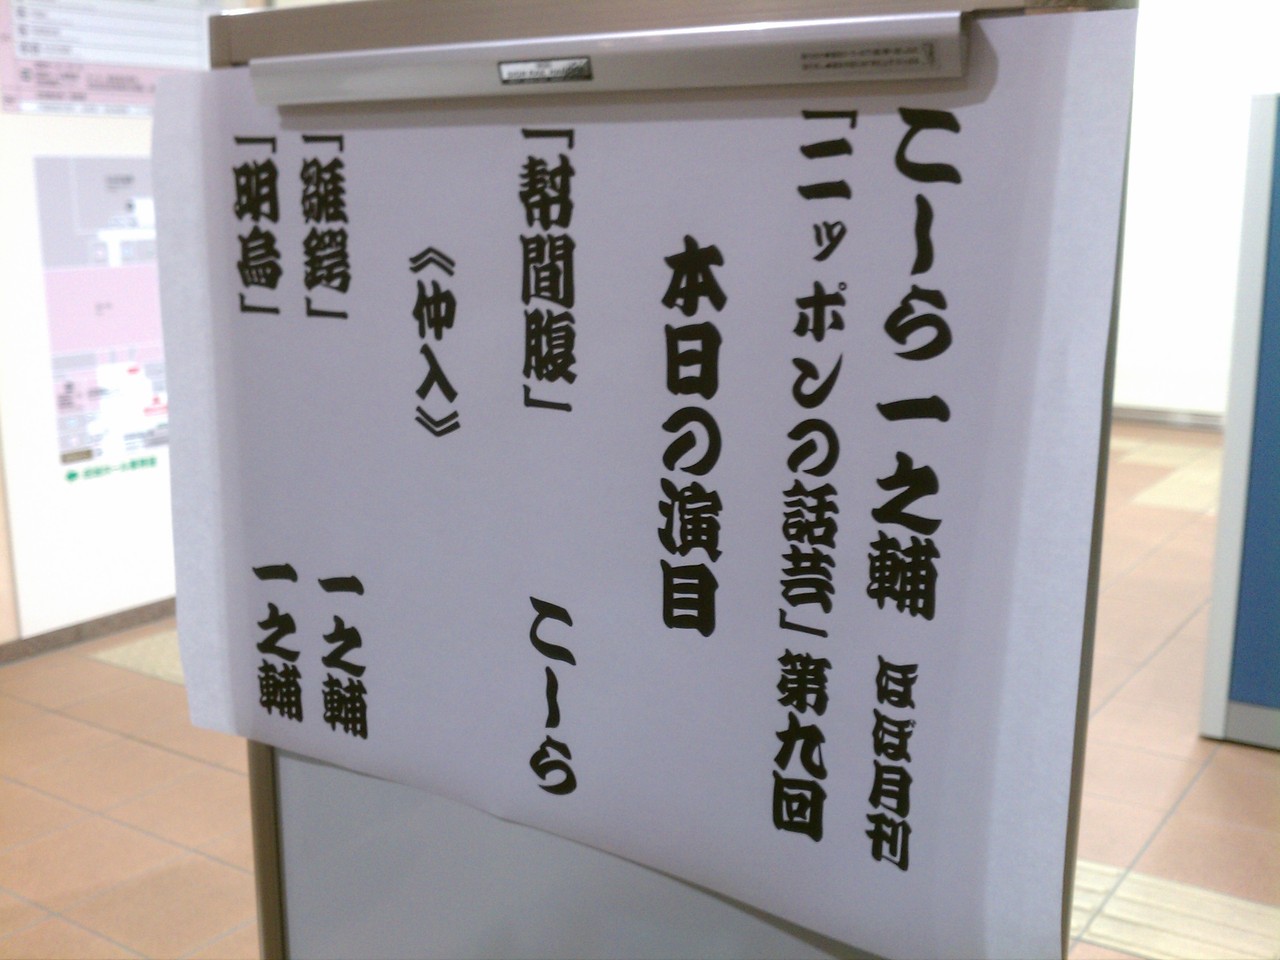 こーら一之輔 ほぼ月刊
「ニッポンの話芸」第九回
本日の演目
「幇間腹」 こーら
《仲入》
「雛鍔」 一之輔
「明烏」 一之輔